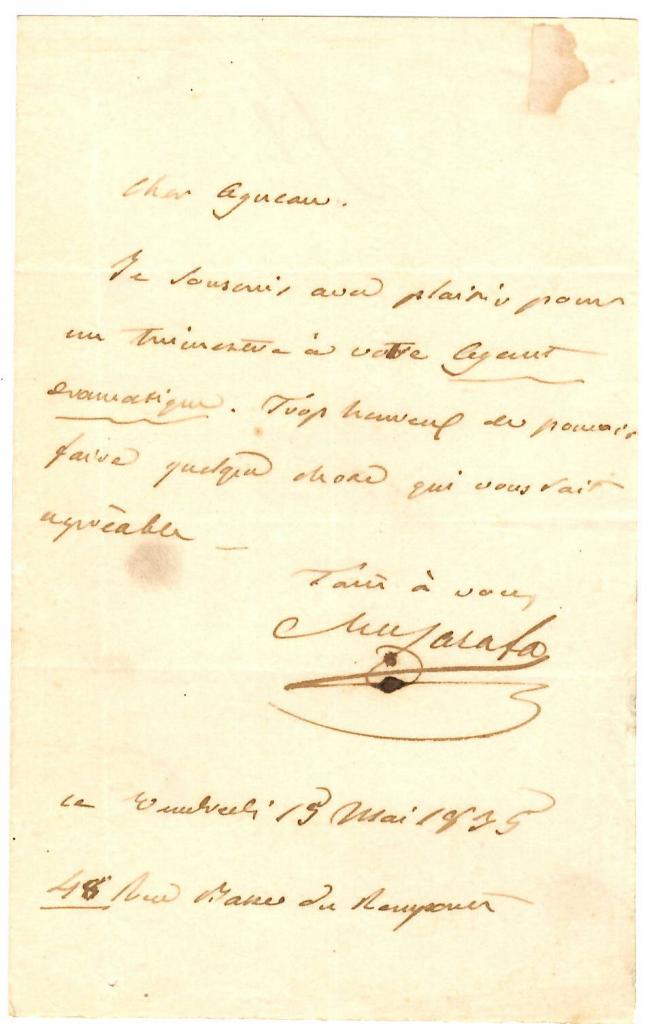 Cher Agneau.
Je souscris avec plaisir pour
un trimestre à votre Agent
dramatique. Trop heureux de pouvoir
faire quelque chose qui vous soit
agréable –
Tout à vous,
Carafa
ce Vendredi 15 Mai 1835
48 Rue Basse du Rempart